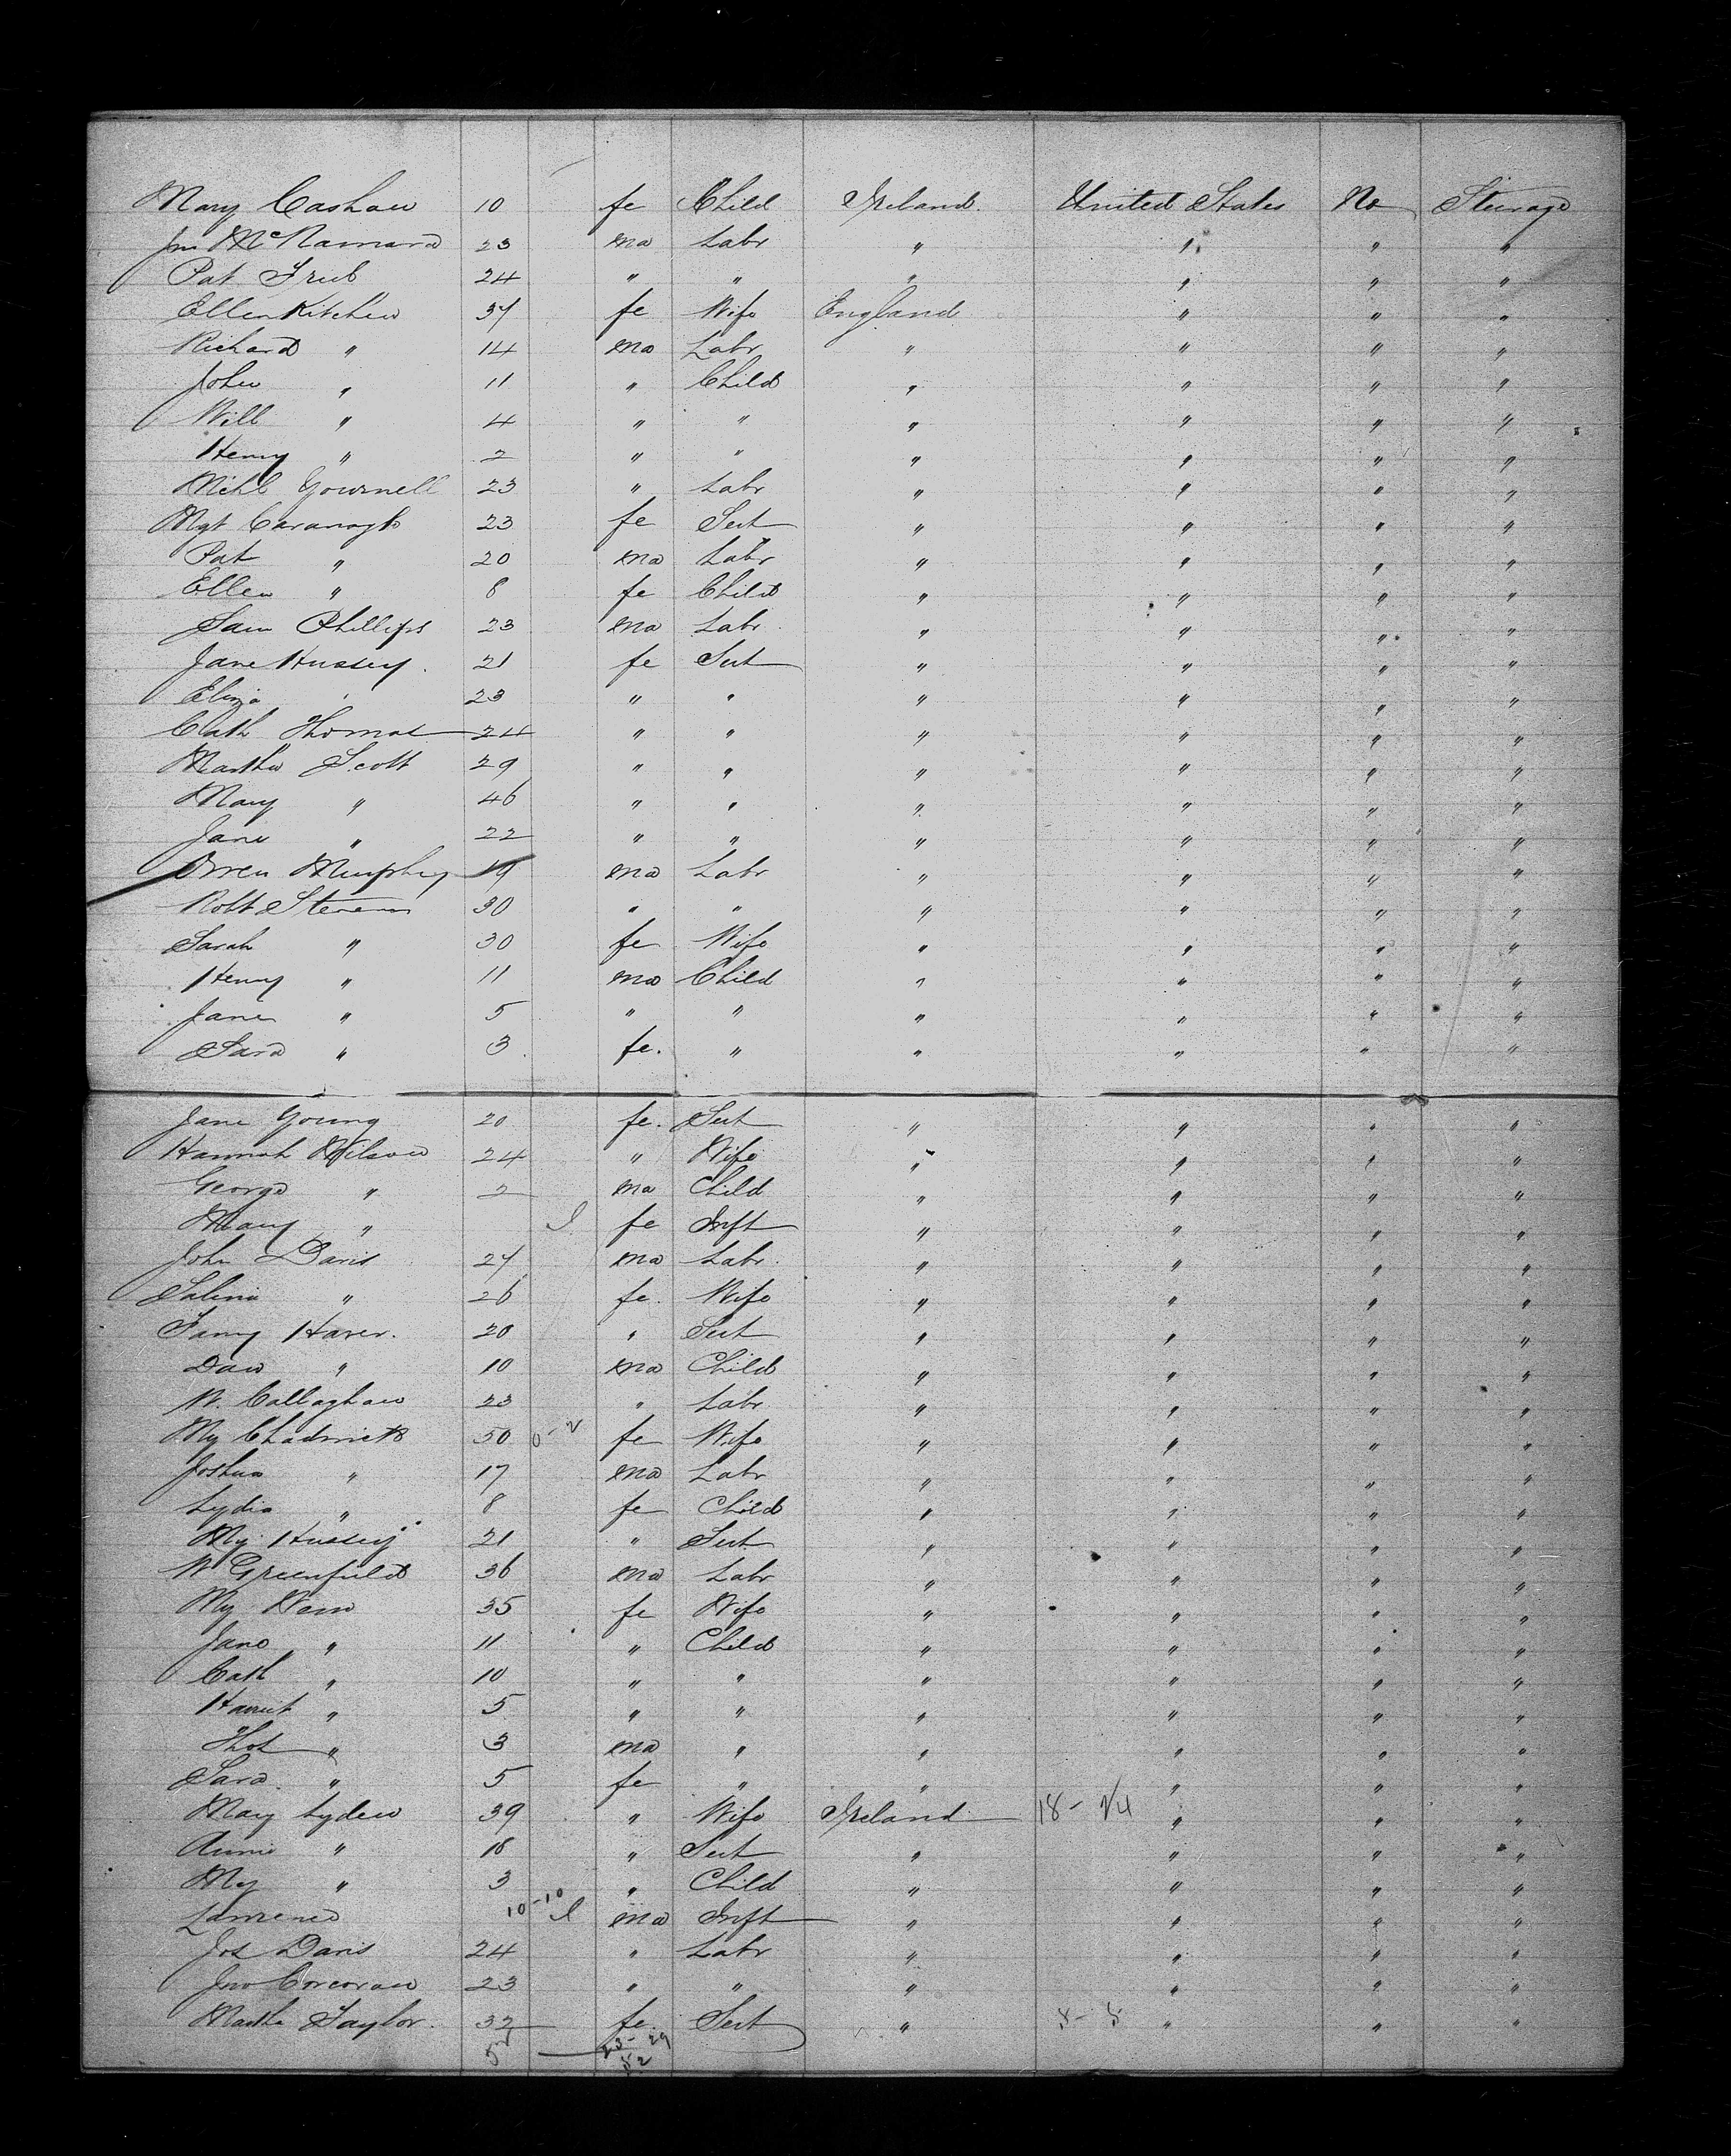 Mary Cashaw 10 fe Child Ireland. United States No Steerage
Jno McNamara 23 ma Labr " " " "
Pat 24 " " " " " "
Ellen Kitchen 37 fe Wife England " " "
Richard " 14 ma Labr " " " "
John " 11 " Child " " " "
Will " 4 " " " " " "
Henry " 2 " " " " " "
Michl Gournell 23 " Labr " " " "
Mgt Cavanagh 23 fe Sevt " " " "
Pat " 20 ma Labr " " " "
Ellen " 8 fe Child " " " "
Sam Phillips 23 ma Labr " " " "
Jane Hussey. 21 fe Sevt " " " "
Eliza " 23 " " " " " "
Cath Thomas 24 " " " " " "
Martha Scott 29 " " " " " "
Mary " 46 " " " " " "
Jane " 22 " " " " " "
Owen Murphy 19 ma Labr " " " "
Robt Stevens 30 " " " " " "
Sarah " 30 fe Wife " " " "
Henry " 11 ma Child " " " "
James " 5 " " " " " "
Sara " 3 fe. " " " " "
Jane Young 20 fe. Sevt " " " "
Hannah Wilson 24 " Wife " " " "
George " 2 ma Child " " " "
Mary " I fe Inft " " " "
John Davis 27 ma Labr. " " " "
Salina " 26 fe. Wife " " " "
Fanny Haver. 20 " Sevt " " " "
Dan " 10 ma Child " " " "
W. Callaghan 23 " Labr " " " "
My Chadwick 50 0-2 fe Wife " " " "
Joshua " 17 ma Labr " " " "
Lydia " 8 fe Child " " " "
My Hussey 21 " Sevt " " " "
W Greenfield 36 ma Labr " " " "
My 35 fe Wife " " " "
Jane " 11 " Child " " " "
Cath " 10 " " " " " "
Harriet " 5 " " " " " "
Thos " 3 ma " " " " "
Sara. " 5 fe " " " " "
Mary Lyden 39 " Wife Ireland 18- 24 " " "
Annie " 18 " Sevt " " " "
My " 3 " Child " " " "
Lawrence 10-10 I ma Inft " " " "
Jos Davis 24 " Labr " " " "
Jno Corcoran 23 " " " " " "
Martha Taylor. 32 fe. Sevt " 5- 5 " " "
23- 29
52